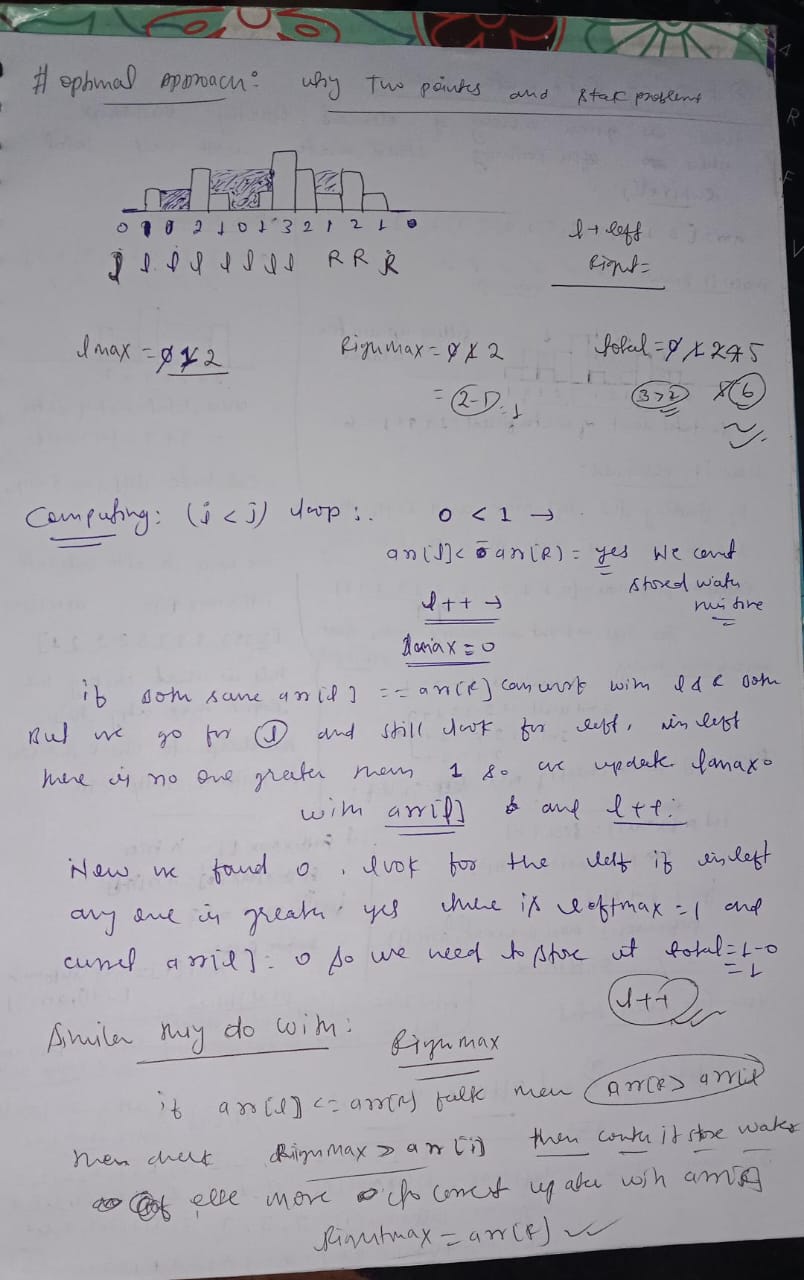 # optimal approach: why Two pointes and stak problem
0 1 0 2 1 0 1 3 2 1 2 1 0
l l l l l l l l R R R
l → left
Right =
lmax = 0 1 2
Rigumax = 0 1 2
total = 0 1 2 4 5
= (2-1) = 1
3>2
6
Computing: (i < j) loop :.
0 < 1 →
arr[l] < arr[R] = yes We cant
stored water
l++ →
lmax = 0
if both same arr[l] == arr[R] can work with l & R both
But we go for l and still look for left, in left
there is no one greater then 1 so we update lmax
with arr[l] and l++.
Now we found 0, look for the left if in left
any one is greater yes there is leftmax = 1 and
arr[l] = 0 so we need to store it total = 1-0
= 1
l++
Similar do with:
Rigumax
if arr[l] <= arr[R] then arr[R] > arr[l]
then check Rigumax > arr[i] then it store water
else move with
Rightmax = arr[R]